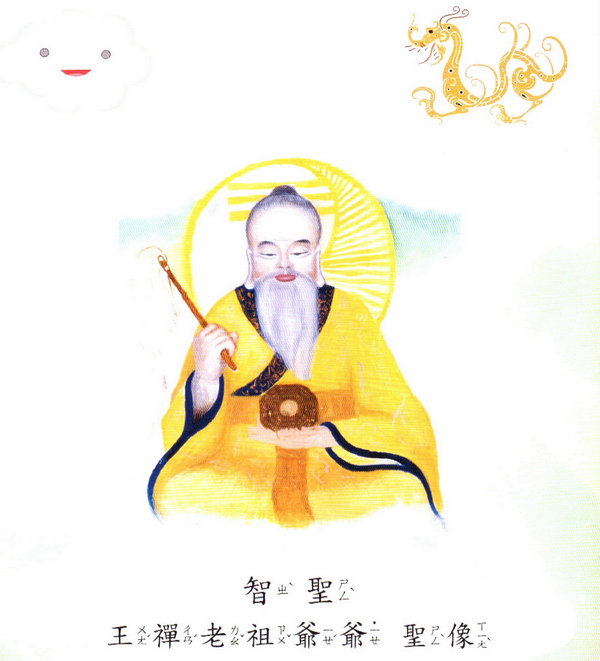 智ㄓˋ 聖ㄕㄥˋ
王ㄨㄤˊ禪ㄔㄢˊ老ㄌㄠˇ祖ㄗㄨˇ爺ㄧㄝˊ爺˙ㄧㄝ 聖ㄕㄥˋ像ㄒㄧㄤˋ